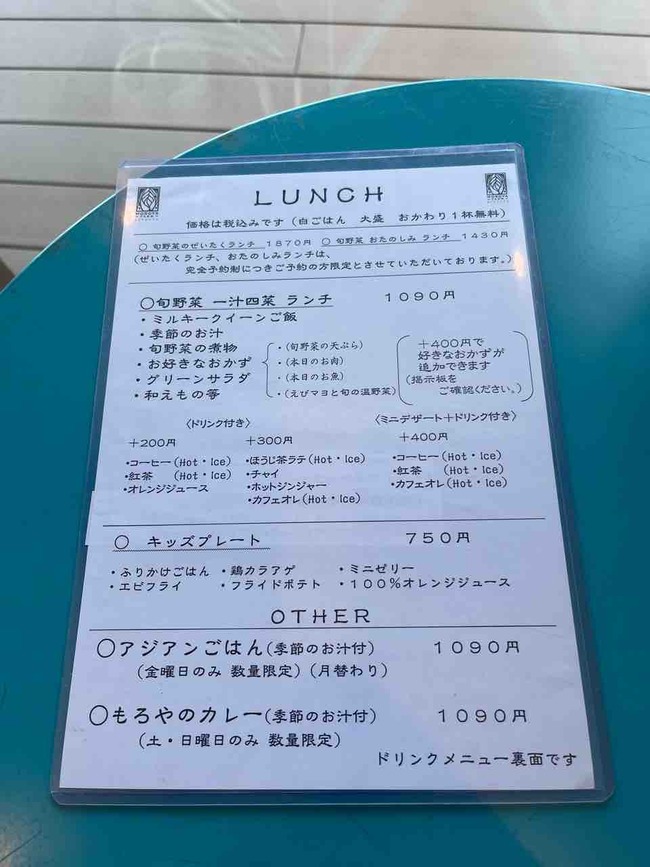 LUNCH
価格は税込みです(白ごはん 大盛 おかわり1杯無料)
○ 旬野菜のぜいたくランチ 1870円 ○ 旬野菜 おたのしみ ランチ 1430円
(ぜいたくランチ、おたのしみランチは、
完全予約制につきご予約の方限定とさせていただいております。)
○旬野菜 一汁四菜 ランチ 1090円
・ミルキークイーンご飯
・季節のお汁
・旬野菜の煮物
・お好きなおかず
・グリーンサラダ
・和えもの等
・(旬野菜の天ぷら)
・(本日のお肉)
・(本日のお魚)
・(えびマヨと旬の温野菜)
+400円で
好きなおかずが
追加できます
(掲示板を
ご確認ください。)
〈ドリンク付き〉
+200円
・コーヒー(Hot・Ice)
・紅茶 (Hot・Ice)
・オレンジジュース
+300円
・ほうじ茶ラテ(Hot・Ice)
・チャイ
・ホットジンジャー
・カフェオレ(Hot・Ice)
〈ミニデザート+ドリンク付き〉
+400円
・コーヒー(Hot・Ice)
・紅茶 (Hot・Ice)
・カフェオレ(Hot・Ice)
○ キッズプレート 750円
・ふりかけごはん ・鶏カラアゲ ・ミニゼリー
・エビフライ ・フライドポテト ・100%オレンジジュース
OTHER
○アジアンごはん(季節のお汁付) 1090円
(金曜日のみ 数量限定)(月替わり)
○もろやのカレー(季節のお汁付) 1090円
(土・日曜日のみ 数量限定)
ドリンクメニュー裏面です